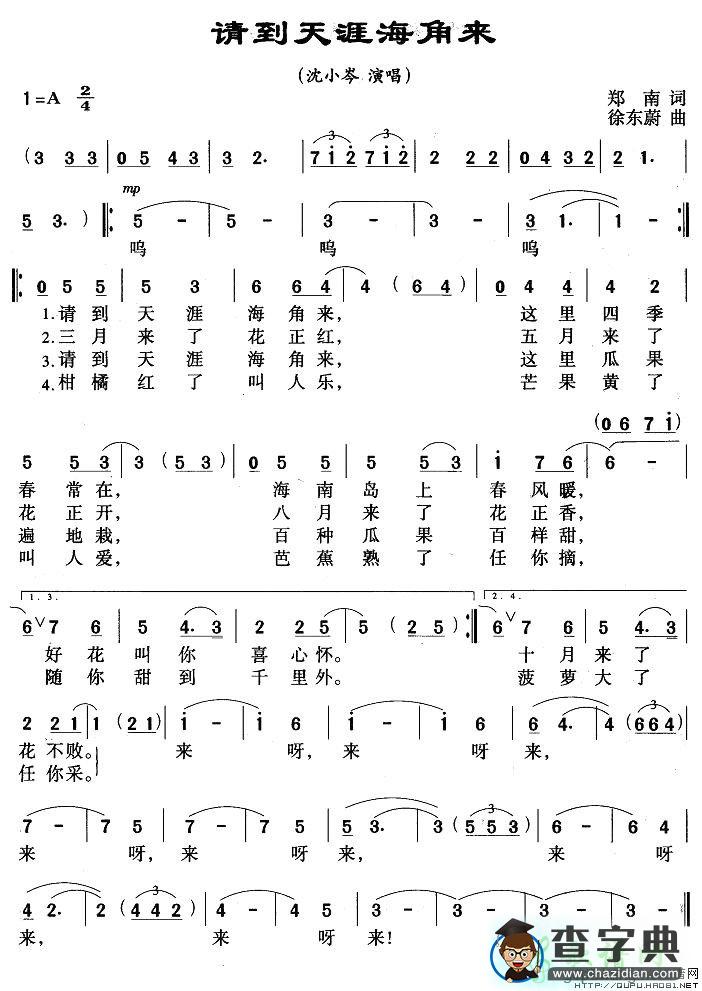 请到天涯海角来
(沈小岑 演唱)
1=A 2/4
郑 南 词
徐东蔚 曲
( 3 3 3 | 0 5 4 3 | 3 2. | 7 i 2 7 i 2 | 2 2 2 | 0 4 3 2 | 2 1. |
mp
5 3. ) ‖: 5 - | 5 - | 3 - | 3 - | 3 1. | 1 - :‖
呜 呜 呜
‖: 0 5 5 | 5 3 | 6 6 4 | 4 ( 6 4 ) | 0 4 4 | 4 2 |
1.请到 天 涯 海 角 来, 这 里 四 季
2.三月 来 了 花 正 红, 五 月 来 了
3.请到 天 涯 海 角 来, 这 里 瓜 果
4.柑橘 红 了 叫 人 乐, 芒 果 黄 了
( 0 6 7 i )
5 5 3 | 3 ( 5 3 ) | 0 5 5 | 5 5 3 | i 7 6 | 6 - |
春 常 在, 海 南 岛 上 春 风 暖,
花 正 开, 八 月 来 了 花 正 香,
遍 地 栽, 百 种 瓜 果 百 样 甜,
叫 人 爱, 芭 蕉 熟 了 任 你 摘,
1. 3. 2. 4.
6 V 7 6 | 5 4. 3 | 2 2 5 | 5 ( 2 5 ) :‖ 6 V 7 6 | 5 4. 3 |
好 花 叫 你 喜 心 怀。 十 月 来 了
随 你 甜 到 千 里 外。 菠 萝 大 了
2 2 1 | 1 ( 2 1 ) | i - | i 6 | i - | i 6 | 6 4. | 4 ( 6 6 4 ) |
花 不 败。 来 呀, 来 呀 来,
任 你 采。
7 - | 7 5 | 7 - | 7 5 | 5 3. | 3 ( 5 5 3 ) | 6 - | 6 4 |
来 呀, 来 呀 来, 来 呀
4 2. | 2 ( 4 4 2 ) | 5 - | 5 2 | 3 - | 3 -
来, 来 呀 来!
查字典
www.chazidian.com
HTTP://QUPU.HAO81.NET